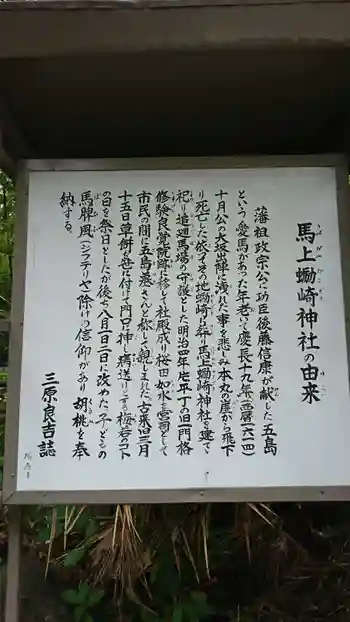 馬上蠣崎神社の由来
藩祖政宗公に功臣後藤信康が献じた五島
という愛馬があった年老いて慶長十九年(西暦一六一四)
十月公の大坂出陣に洩れた事を悲しみ本丸の崖から飛下
り死亡した依ってその地蠣崎に葬り馬上蠣崎神社を建て
祀り追廻馬場の守護とした明治四年片平丁の旧一門格
修験良覚院跡に移して社殿成り桜田如水宮司として
市民の間に五島墓さんと称して親しまれた古来旧三月
十五日草餅を苞に付けて門口に神し病送りとする梅若の下
の日を祭日としたが後に八月一日二日に改めた子どもの
馬脾風(ジフテリヤ)除けの信仰があり胡桃を奉
納する。
三原良吉誌